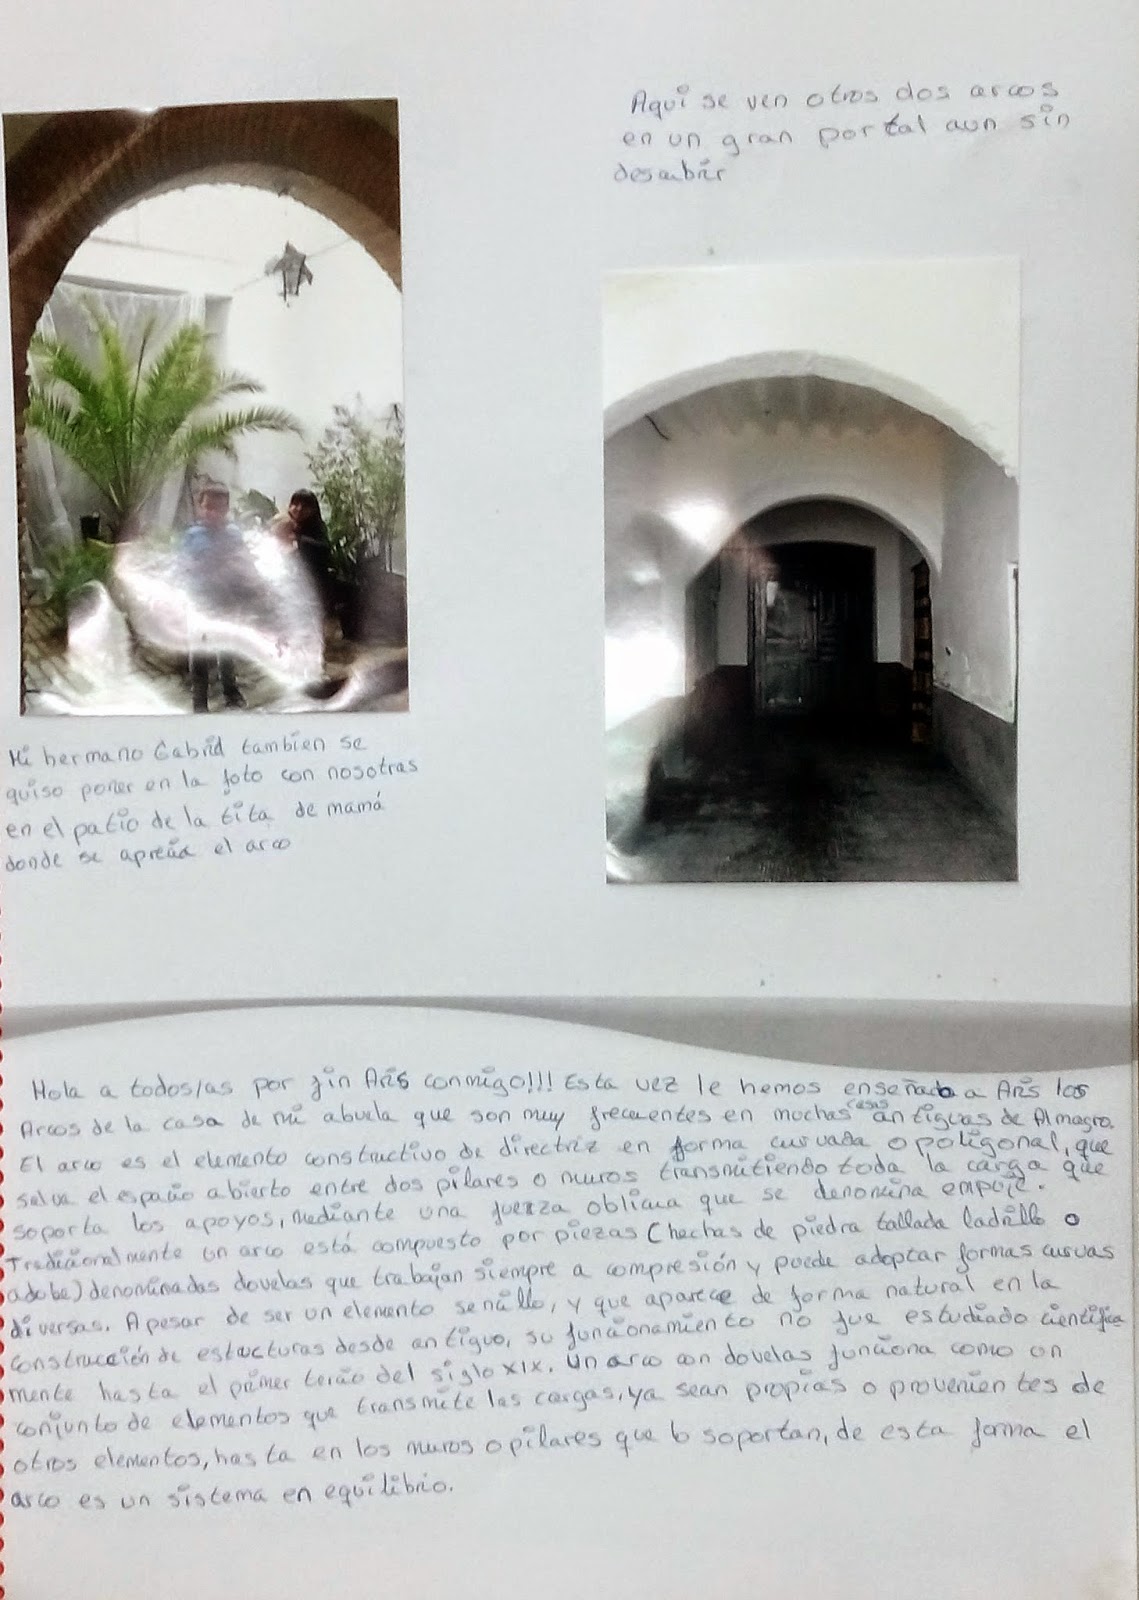 Aqui se ven otros dos arcos
en un gran portal aun sin
descubrir
Mi hermano Gabriel tambien se
quiso poner en la foto con nosotras
en el patio de la tita de mamá
donde se aprecia el arco
Hola a todos/as por fin Aris conmigo!!! Esta vez le hemos enseñado a Aris los
Arcos de la casa de mi abuela que son muy frecuentes en muchas casas antiguas de Almagro.
El arco es el elemento constructivo de directriz en forma curvada o poligonal, que
salva el espacio abierto entre dos pilares o muros transmitiendo toda la carga que
soporta los apoyos, mediante una fuerza oblicua que se denomina empuje.
Tradicionalmente un arco está compuesto por piezas (hechas de piedra tallada ladrillo o
adobe) denominadas dovelas que trabajan siempre a compresión y puede adoptar formas curvas
diversas. Apesar de ser un elemento sencillo, y que aparece de forma natural en la
construcción de estructuras desde antiguo, su funcionamiento no fue estudiado cientifica
mente hasta el primer tercio del siglo XIX. Un arco con dovelas funciona como un
conjunto de elementos que transmite las cargas, ya sean propias o provenientes de
otros elementos, hasta en los muros o pilares que lo soportan, de esta forma el
arco es un sistema en equilibrio.